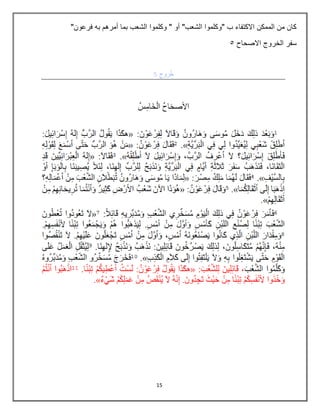 كان من الممكن الاكتفاء ب "وكلموا الشعب" أو " وكلموا الشعب بما أمرهم به فرعون"
سفر الخروج الاصحاح ٥
خُرُوج 5
اَلأَصْحَاحُ الْخَامِسُ
١وَبَعْدَ ذلِكَ دَخَلَ مُوسَى وَهَارُونُ وَقَالاَ لِفِرْعَوْنَ: «هكَذَا يَقُولُ الرَّبُّ إِلهُ إِسْرَائِيلَ:
أَطْلِقْ شَعْبِي لِيُعَيِّدُوا لِي فِي الْبَرِّيَّةِ». ٢فَقَالَ فِرْعَوْنُ: «مَنْ هُوَ الرَّبُّ حَتَّى أَسْمَعَ لِقَوْلِهِ
فَأُطْلِقَ إِسْرَائِيلَ؟ لاَ أَعْرِفُ الرَّبَّ، وَإِسْرَائِيلَ لاَ أُطْلِقُهُ». ٣فَقَالاَ: «إِلهُ الْعِبْرَانِيِّينَ قَدِ
الْتَقَانَا، فَنَذْهَبُ سَفَرَ ثَلاَثَةِ أَيَّامٍ فِي الْبَرِّيَّةِ وَنَذْبَحُ لِلرَّبِّ إِلهِنَا، لِئَلاَّ يُصِيبَنَا بِالْوَبَإِ أَوْ
بِالسَّيْفِ». ٤فَقَالَ لَهُمَا مَلِكُ مِصْرَ: «لِمَاذَا يَا مُوسَى وَهَارُونُ تُبَطِّلاَنِ الشَّعْبَ مِنْ أَعْمَالِهِ؟
اِذْهَبَا إِلَى أَثْقَالِكُمَا». ٥وَقَالَ فِرْعَوْنُ: «هُوَذَا الآنَ شَعْبُ الأَرْضِ كَثِيرٌ وَأَنْتُمَا تُرِيحَانِهِمْ مِنْ
أَثْقَالِهِمْ».
٦فَأَمَرَ فِرْعَوْنُ فِي ذلِكَ الْيَوْمِ مُسَخِّرِي الشَّعْبِ وَمُدَبِّرِيهِ قَائِلاً: ٧«لاَ تَعُودُوا تُعْطُونَ
الشَّعْبَ تِبْنًا لِصُنْعِ اللِّبْنِ كَأَمْسِ وَأَوَّلَ مِنْ أَمْسِ. لِيَذْهَبُوا هُمْ وَيَجْمَعُوا تِبْنًا لأَنْفُسِهِمْ.
٨وَمِقْدَارَ اللِّبْنِ الَّذِي كَانُوا يَصْنَعُونَهُ أَمْسِ، وَأَوَّلَ مِنْ أَمْسِ تَجْعَلُونَ عَلَيْهِمْ. لاَ تُنْقِصُوا
مِنْهُ، فَإِنَّهُمْ مُتَكَاسِلُونَ، لِذلِكَ يَصْرُخُونَ قَائِلِينَ: نَذْهَبُ وَنَذْبَحُ لإِلهِنَا. ٩لِيُثَقَّلِ الْعَمَلُ عَلَى
الْقَوْمِ حَتَّى يَشْتَغِلُوا بِهِ وَلاَ يَلْتَفِتُوا إِلَى كَلاَمِ الْكَذِبِ». ١٠فَخَرَجَ مُسَخِّرُو الشَّعْبِ وَمُدَبِّرُوهُ
وَكَلَّمُوا الشَّعْبَ، قَائِلِينَ لِلشَّعْبِ: «هكَذَا يَقُولُ فِرْعَوْنُ: لَسْتُ أُعْطِيكُمْ تِبْنًا. ١١اِذْهَبُوا أَنْتُمْ
وَخُذُوا لأَنْفُسِكُمْ تِبْنًا مِنْ حَيْثُ تَجِدُونَ. إِنَّهُ لاَ يُنْقَصُ مِنْ عَمَلِكُمْ شَيْءٌ».
15